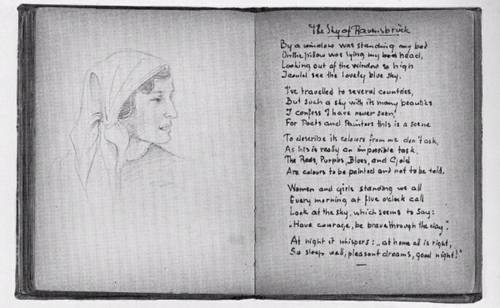 The Sky of Ravensbrück
By a window was standing my bed
On the pillow was lying my head,
Looking out of the window so high
I could see the lovely blue sky.
I've travelled to several countries,
But such a sky with its many beauties
I confess I have never seen,
For Poets and Painters this is a scene
To describe its colours from me don't ask,
As this is really an impossible task.
The Reds, Purples, Blues, and Gold
Are colours to be painted and not to be told.
Women and girls standing we all
Every morning at five o'clock call
Look at the sky, which seems to say:
"Have courage, be brave through the day".
At night it whispers: "at home all is right,
So sleep well, pleasant dreams, good night!"